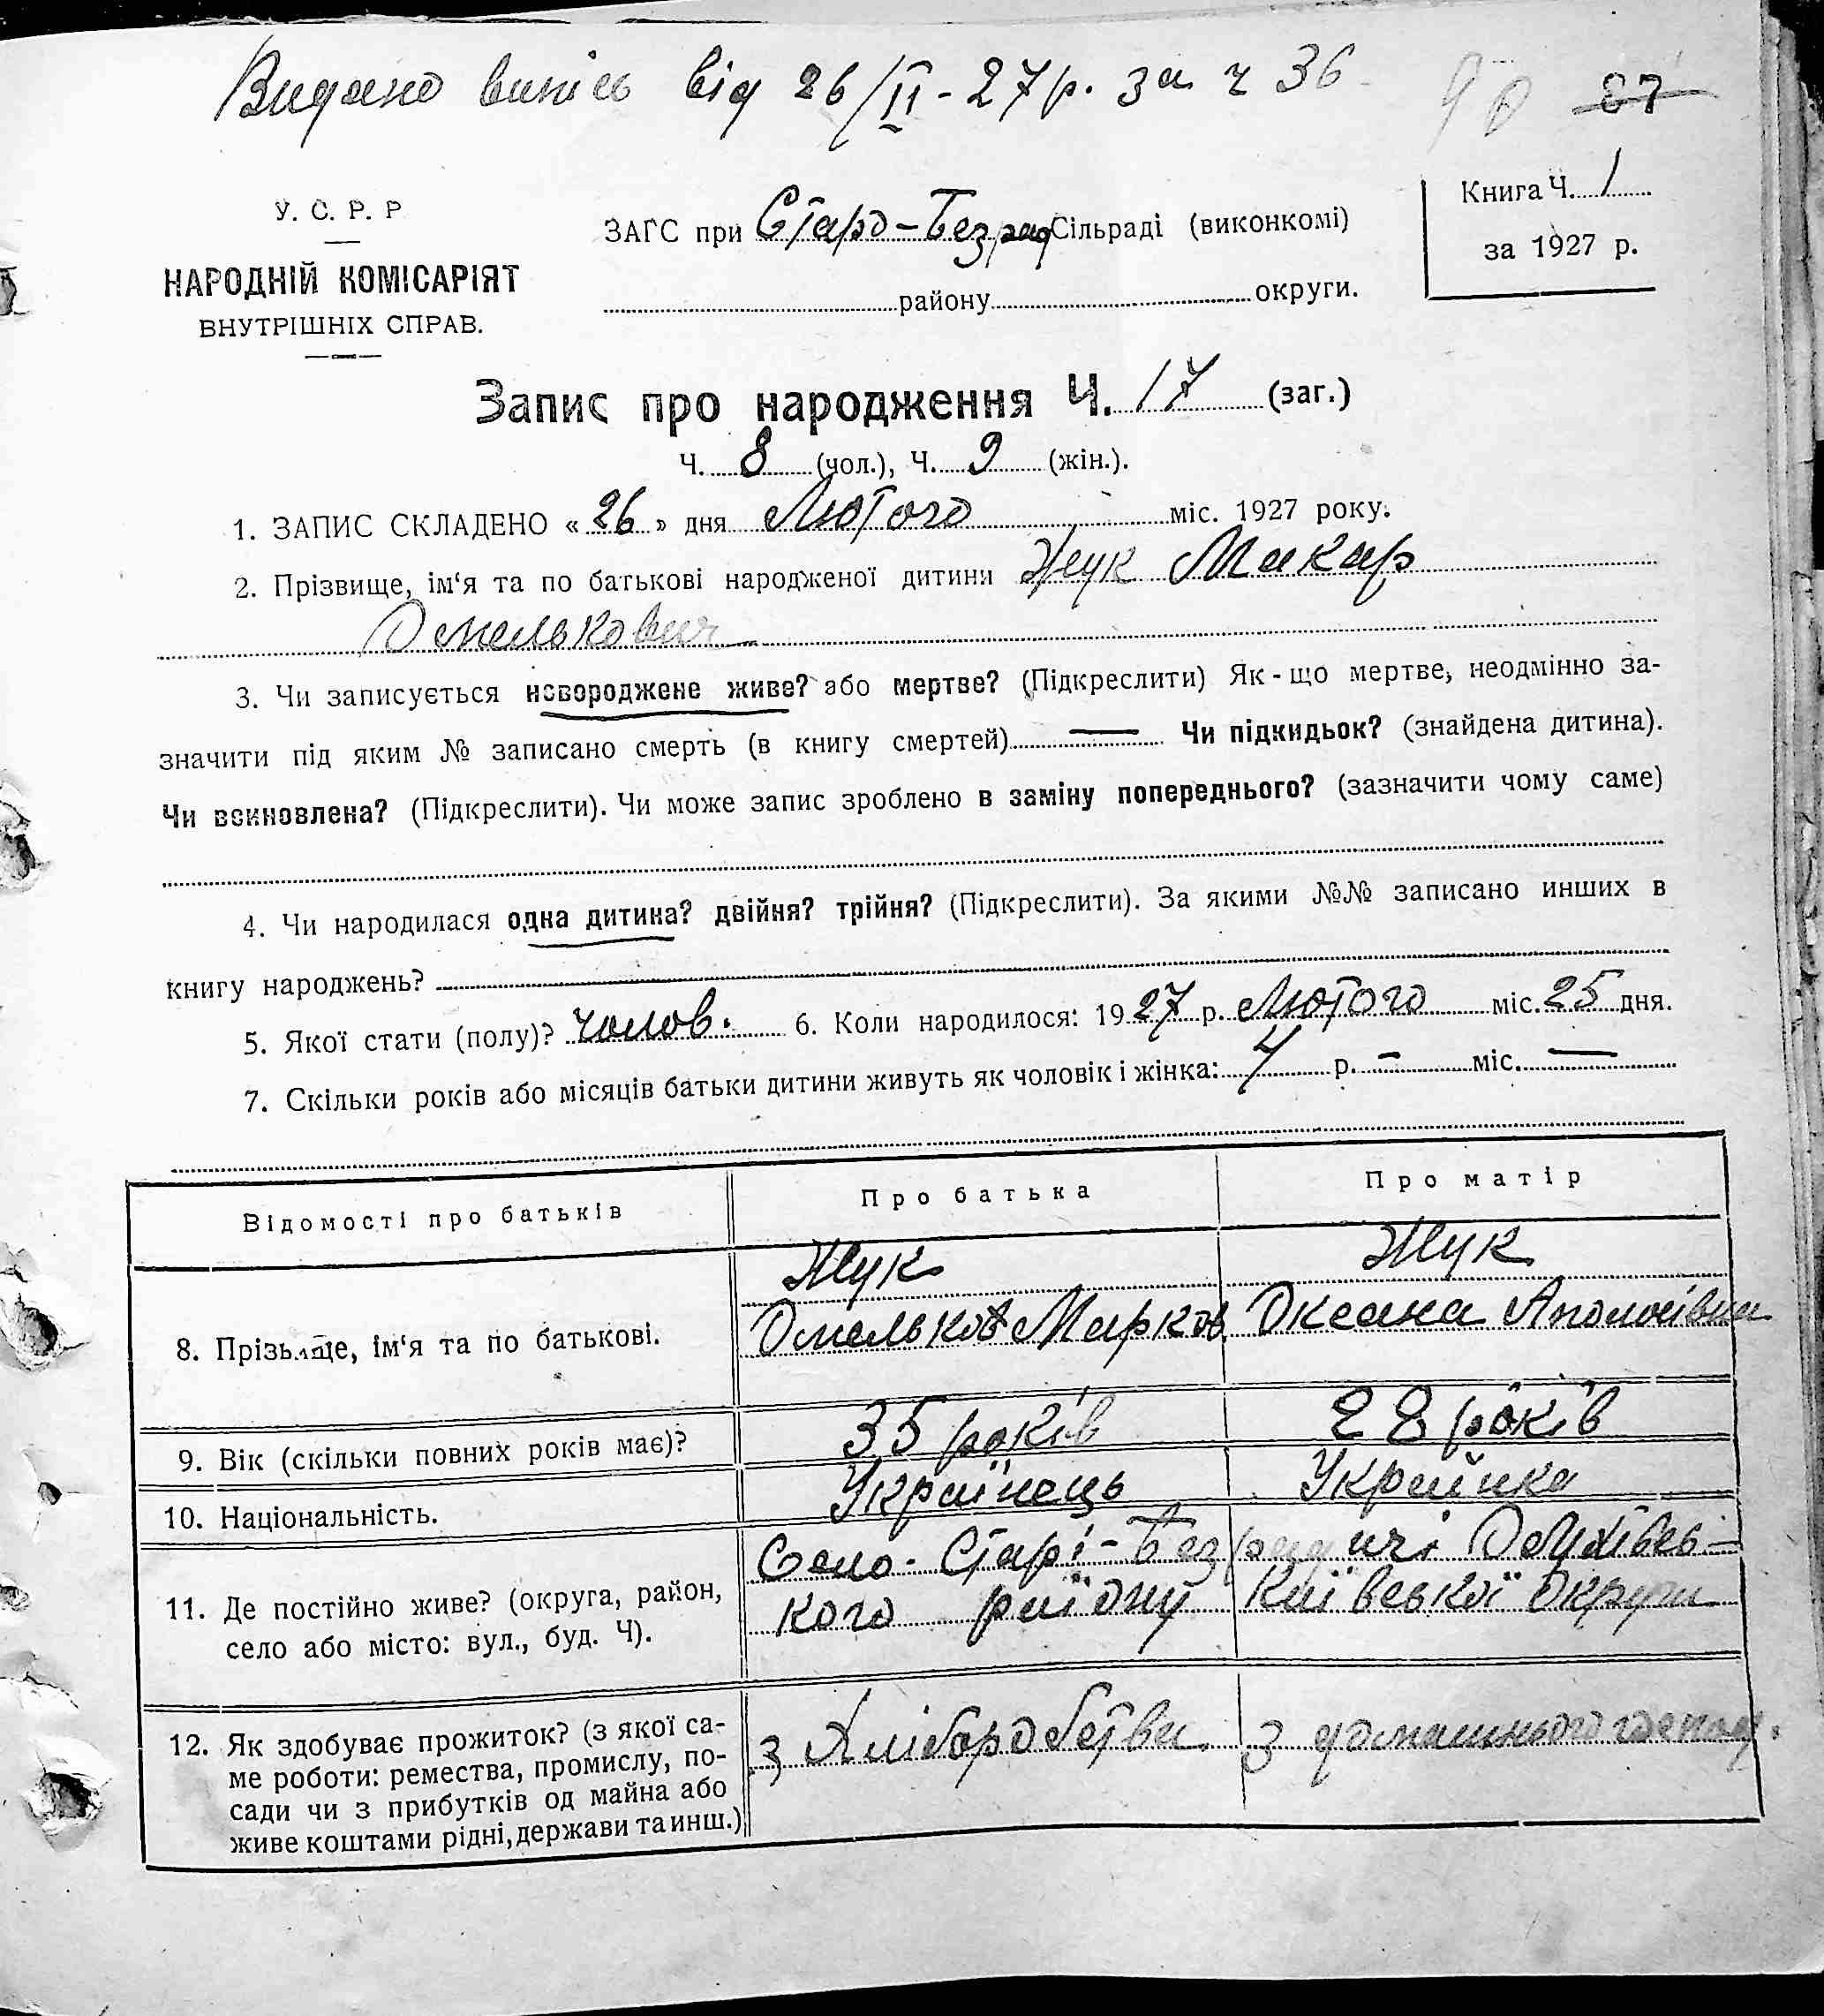 Видано випісь від 26/II - 27 р. за ч 36
87
У. С. Р. Р
НАРОДНІЙ КОМІСАРІЯТ
ВНУТРІШНІХ СПРАВ.
ЗАГС при Старо-Безрад Сільраді (виконкомі)
району округи.
Книга Ч. 1
за 1927 р.
Запис про народження Ч. 17 (заг.)
Ч. 8 (чол.), Ч. 9 (жін.).
1. ЗАПИС СКЛАДЕНО « 26 » дня Лютого міс. 1927 року.
2. Прізвище, ім‘я та по батькові народженої дитини Жук Макар
Омелькович
3. Чи записується новороджене живе? або мертве? (Підкреслити) Як-що мертве, неодмінно за-
значити під яким № записано смерть (в книгу смертей) — Чи підкидьок? (знайдена дитина).
Чи всиновлена? (Підкреслити). Чи може запис зроблено в заміну попереднього? (зазначити чому саме)
4. Чи народилася одна дитина? двійня? трійня? (Підкреслити). За якими №№ записано инших в
книгу народжень?
5. Якої стати (полу)? чолов. 6. Коли народилося: 1927 р. Лютого міс. 25 дня.
7. Скільки років або місяців батьки дитини живуть як чоловік і жінка: 4 р. – міс. —
Відомості про батьків Про батька Про матір
8. Прізьвище, ім‘я та по батькові.
Жук Жук
Омельков Марков Оксана Аполонівна
9. Вік (скільки повних років має)? 35 років 28 років
10. Національність. Українець Українка
11. Де постійно живе? (округа, район,
село або місто: вул., буд. Ч).
Село-Старі-Безрадичі Обухівсь-
кого району Київської округи
12. Як здобуває прожиток? (з якої са-
ме роботи: ремества, промислу, по-
сади чи з прибутків од майна або
живе коштами рідні, держави та инш.)
з Хліборобства з домашнього господ.